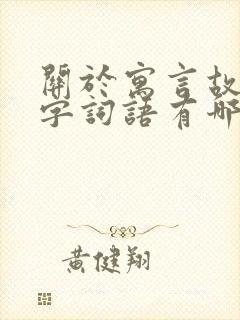 關於寓言故
字詞語有哪
黃健翔